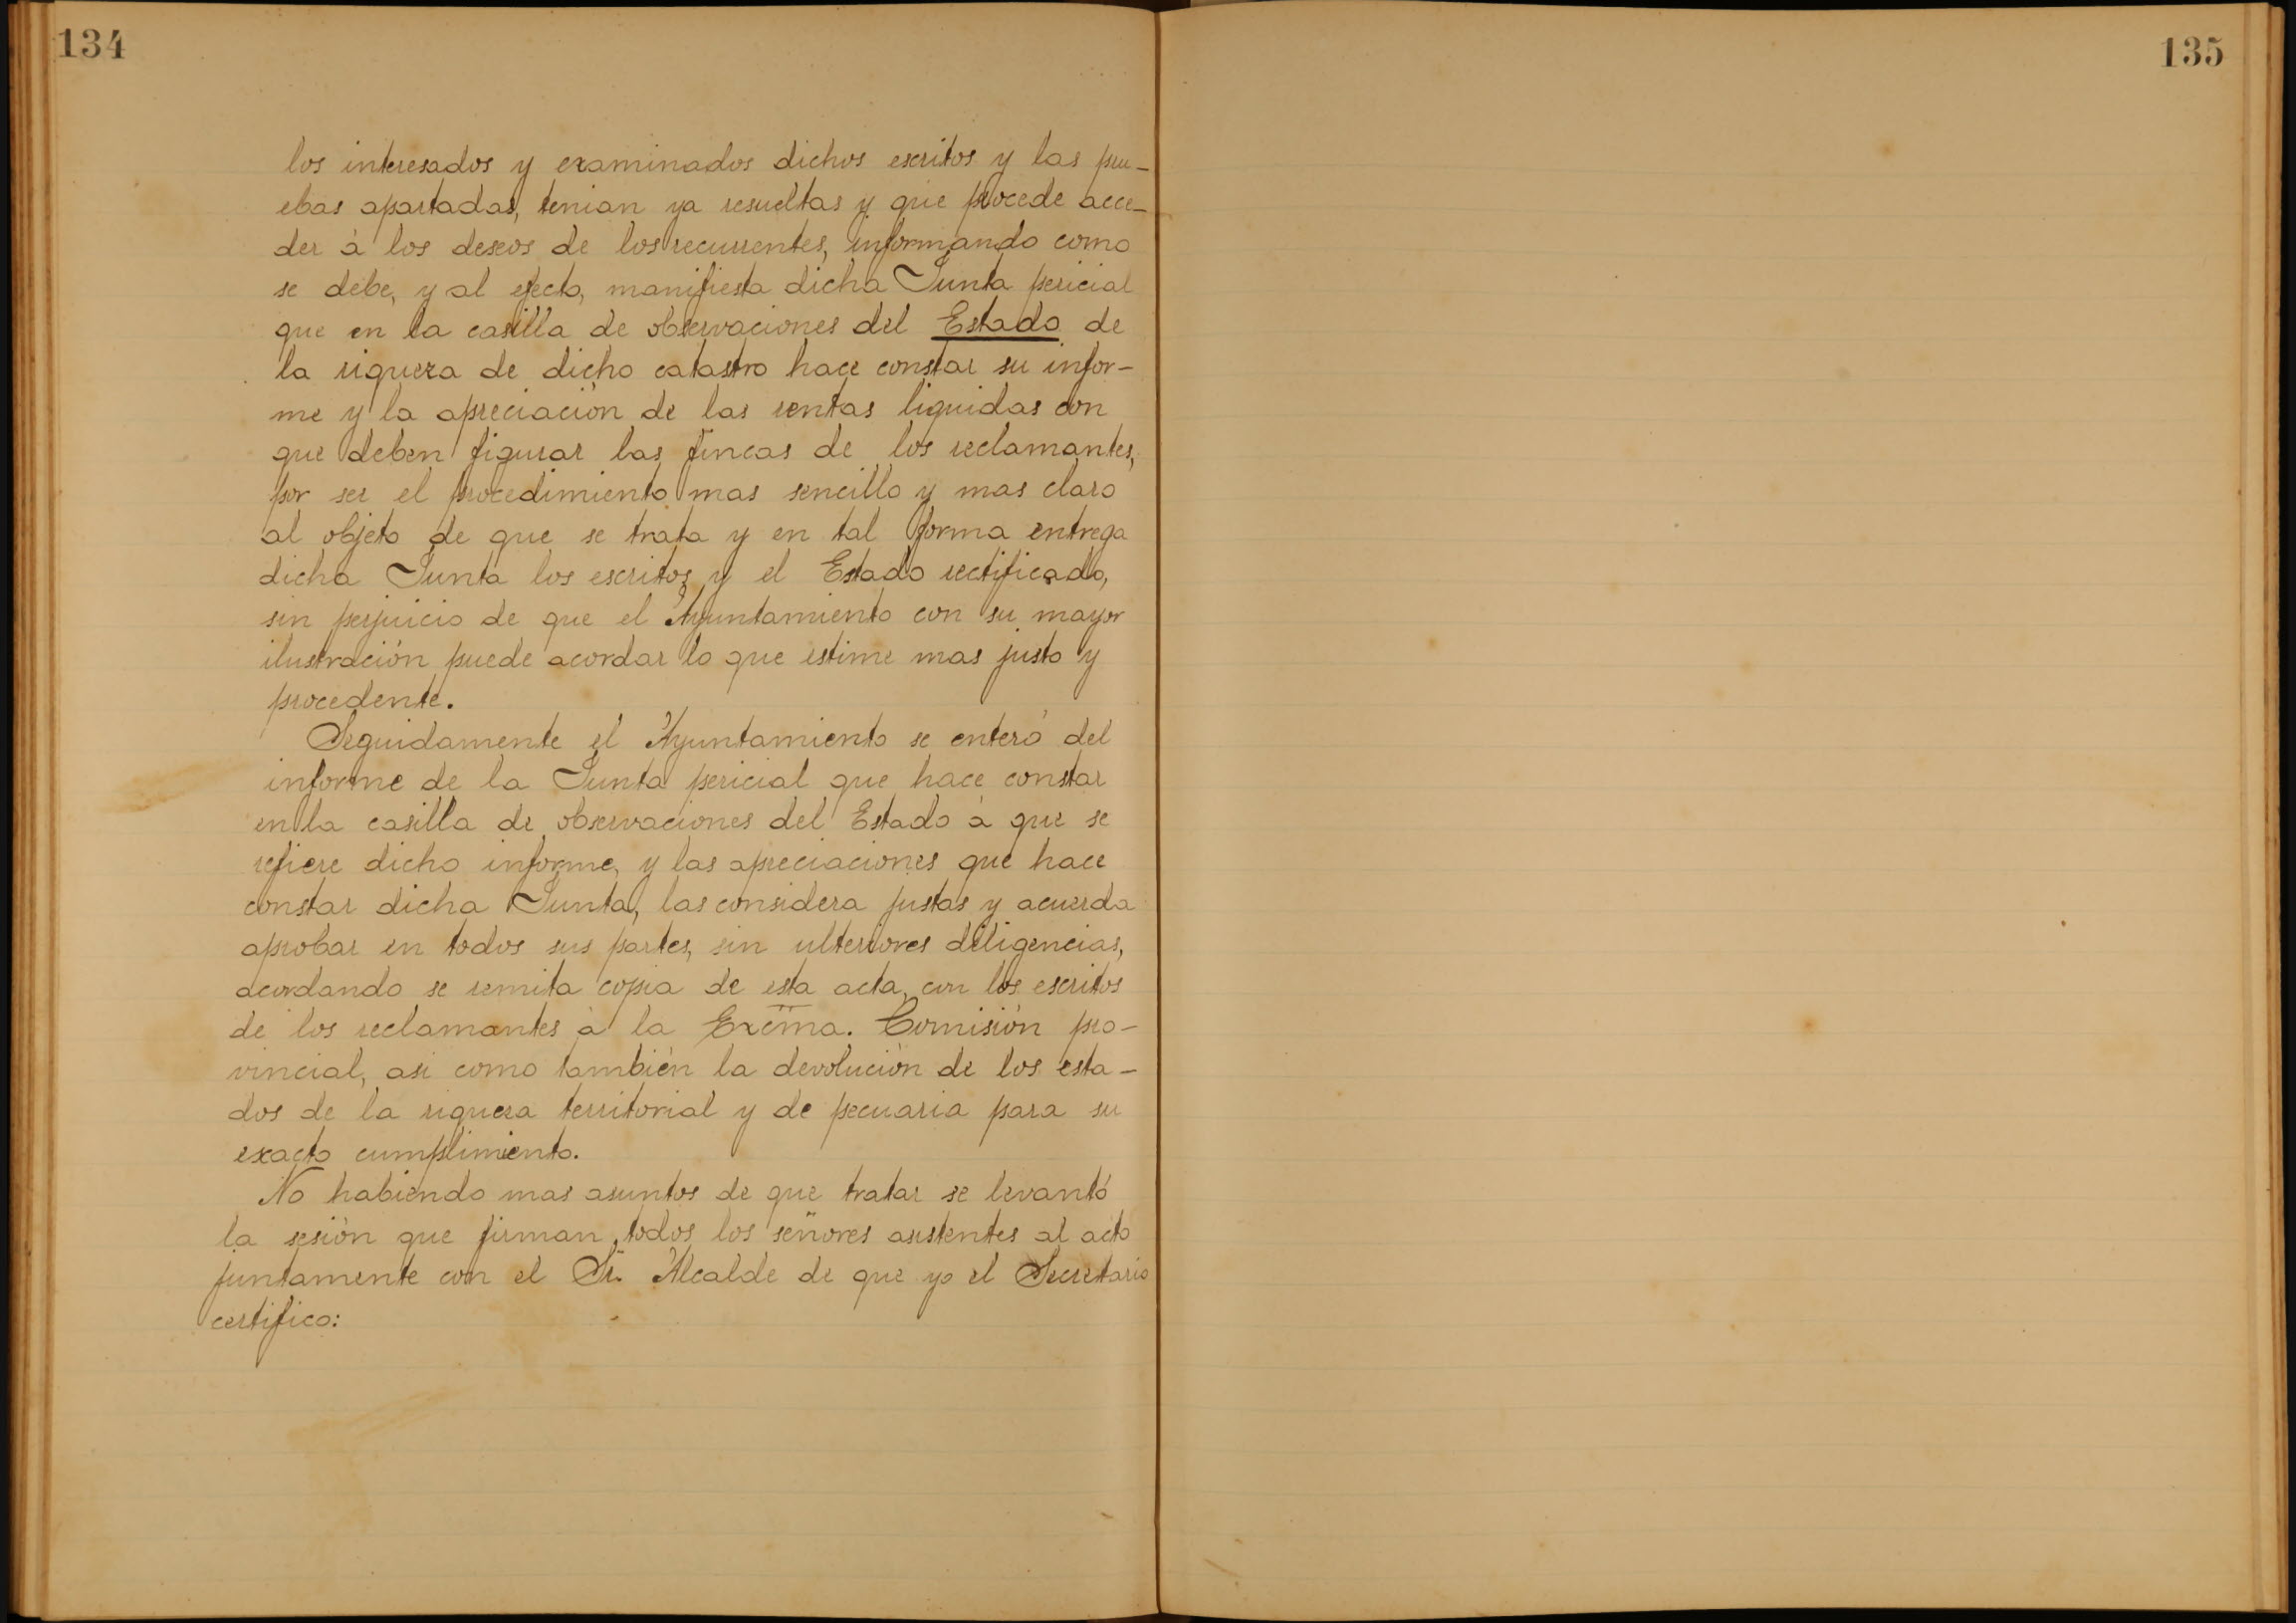 134
los interesados y examinados dichos escritos y las pru-
ebas apartadas, tenian ya resueltas y que procede acce-
der á los deseos de los recurrentes, informando como
se debe, y al efecto, manifiesta dicha Junta pericial
que en la casilla de observaciones del Estado de
la riqueza de dicho catastro hace constar su infor-
me y la apreciación de las rentas liquidas con
que deben figurar las fincas de los reclamantes,
por ser el procedimiento mas sencillo y mas claro
al objeto de que se trata y en tal forma entrega
dicha Junta los escritos y el Estado rectificado,
sin perjuicio de que el Ayuntamiento con su mayor
ilustración puede acordar lo que estime mas justo y
procedente.
Seguidamente el Ayuntamiento se enteró del
informe de la Junta pericial que hace constar
en la casilla de observaciones del Estado á que se
refiere dicho informe, y las apreciaciones que hace
constar dicha Junta, las considera justas y acuerda
aprobar en todos sus partes, sin ulteriores diligencias,
acordando se remita copia de esta acta, con los escritos
de los reclamantes á la Excma. Comisión pro-
vincial, asi como también la devolución de los esta-
dos de la riqueza territorial y de pecuaria para su
exacto cumplimiento.
No habiendo mas asuntos de que tratar se levantó
la sesión que firman todos los señores asistentes al acto
juntamente con el Sr. Alcalde de que yo el Secretario
certifico:
135